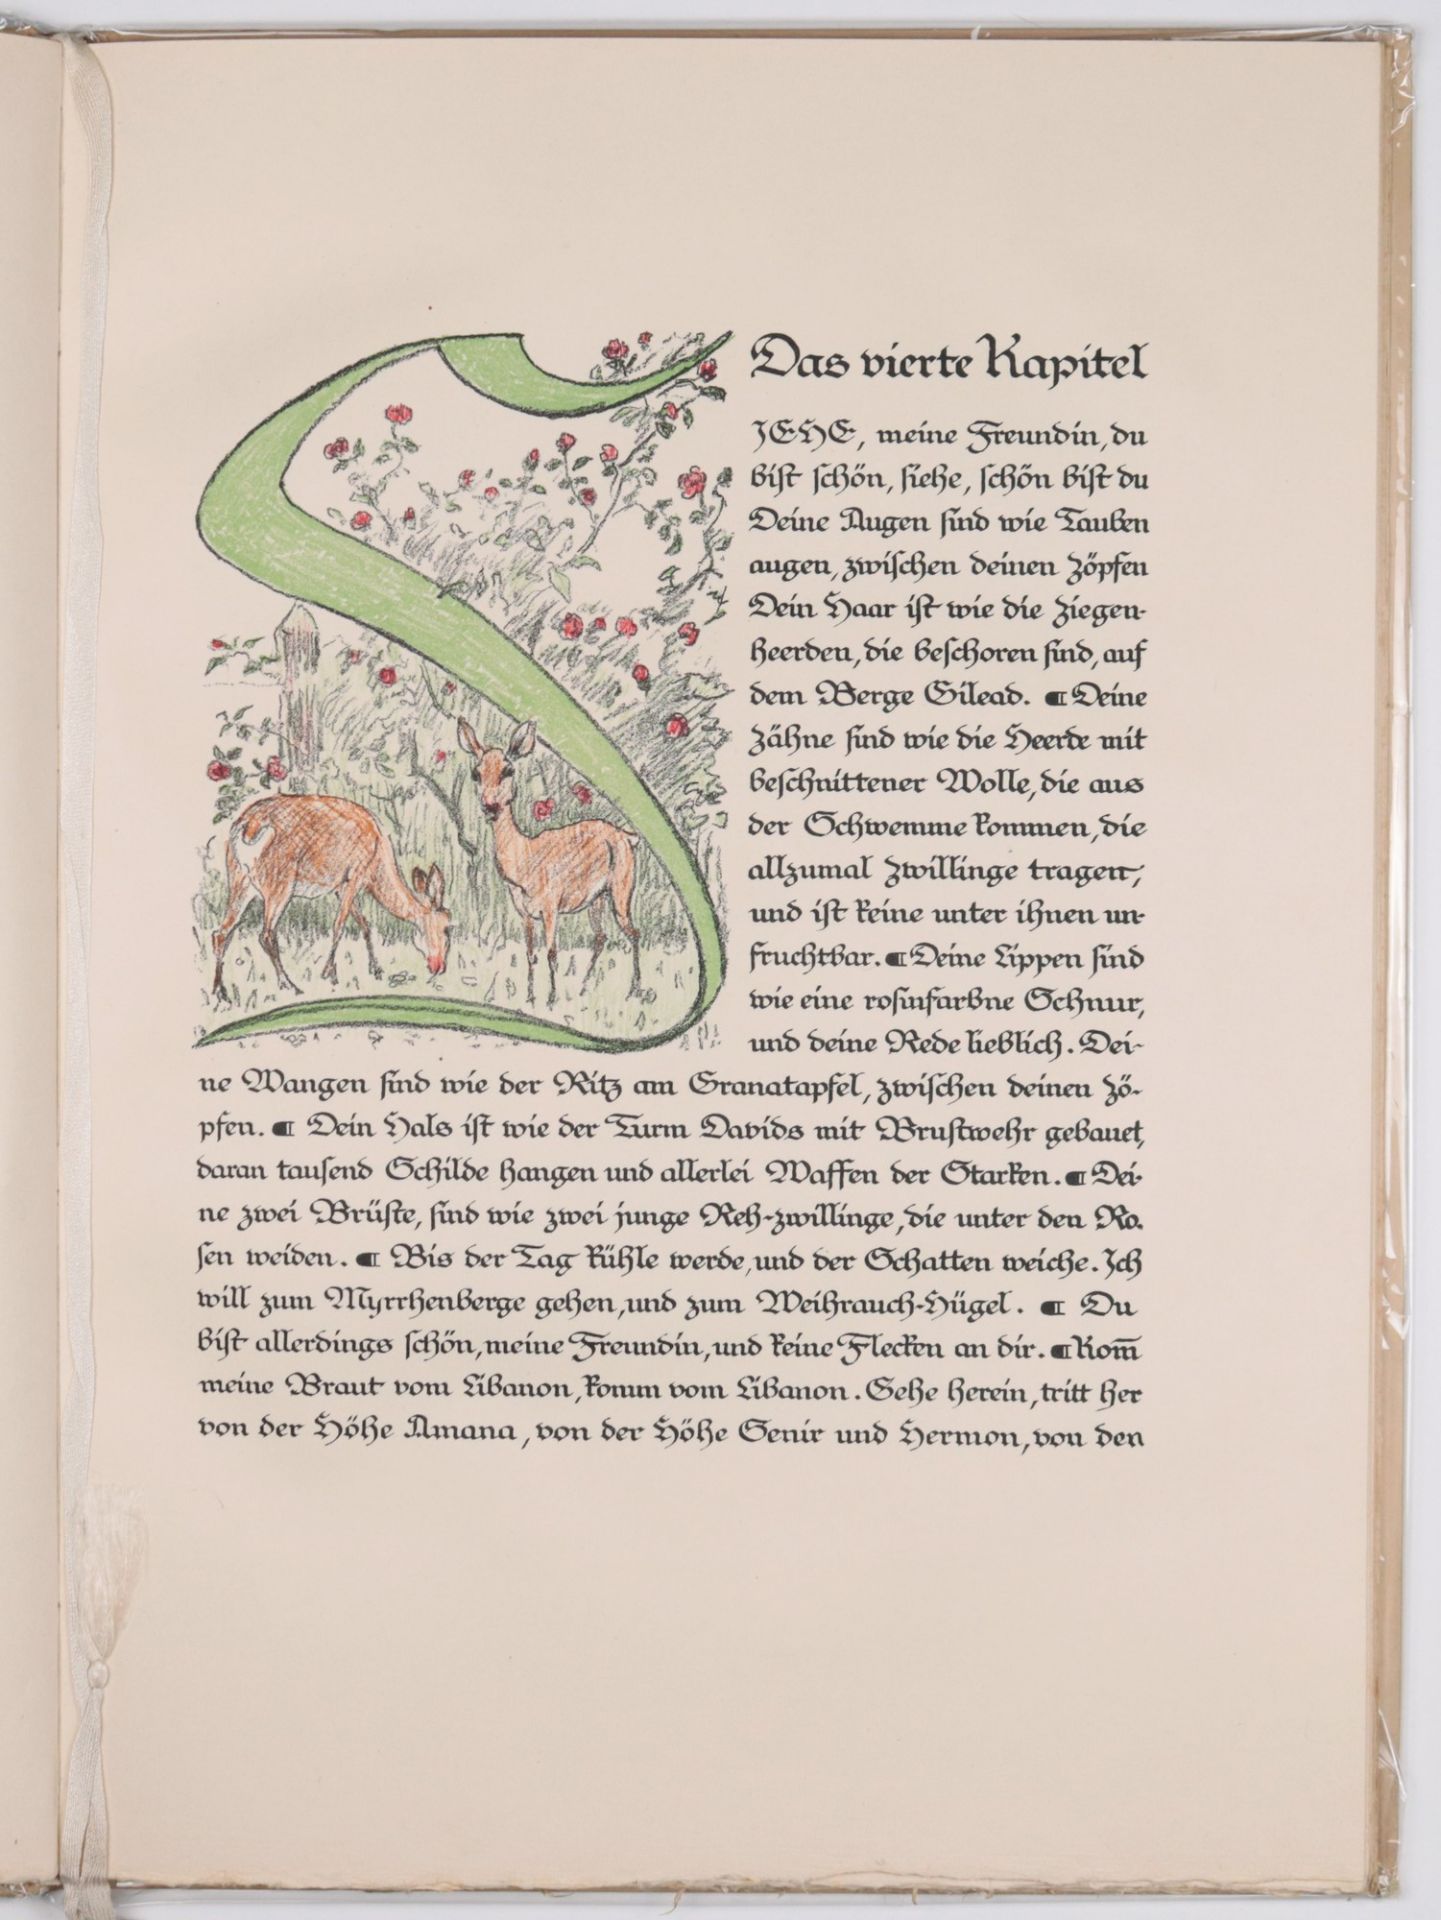 Das vierte Kapitel
SIEHE, meine Freundin, du
bist schön, siehe, schön bist du
Deine Augen sind wie Tauben
augen, zwischen deinen Zöpfen
Dein Haar ist wie die Ziegen-
heerden, die beschoren sind, auf
dem Berge Gilead. ¶ Deine
Zähne sind wie die Heerde mit
beschnittener Wolle, die aus
der Schwemme kommen, die
allzumal Zwillinge tragen,
und ist keine unter ihnen un-
fruchtbar. ¶ Deine Lippen sind
wie eine rosinfarbne Schnur,
und deine Rede lieblich. Dei-
ne Wangen sind wie der Ritz am Granatapfel, zwischen deinen Zö-
pfen. ¶ Dein Hals ist wie der Turm Davids mit Brustwehr gebauet,
daran tausend Schilde hangen und allerlei Waffen der Starken. ¶ Dei-
ne zwei Brüste, sind wie zwei junge Reh-zwillinge, die unter den Ro-
sen weiden. ¶ Bis der Tag kühle werde, und der Schatten weiche. Ich
will zum Myrrhenberge gehen, und zum Weihrauch-Hügel. ¶ Du
bist allerdings schön, meine Freundin, und keine Flecken an dir. ¶ Kom̅
meine Braut vom Libanon, komm vom Libanon. Gehe herein, tritt her
von der Höhe Amana, von der Höhe Senir und Hermon, von den